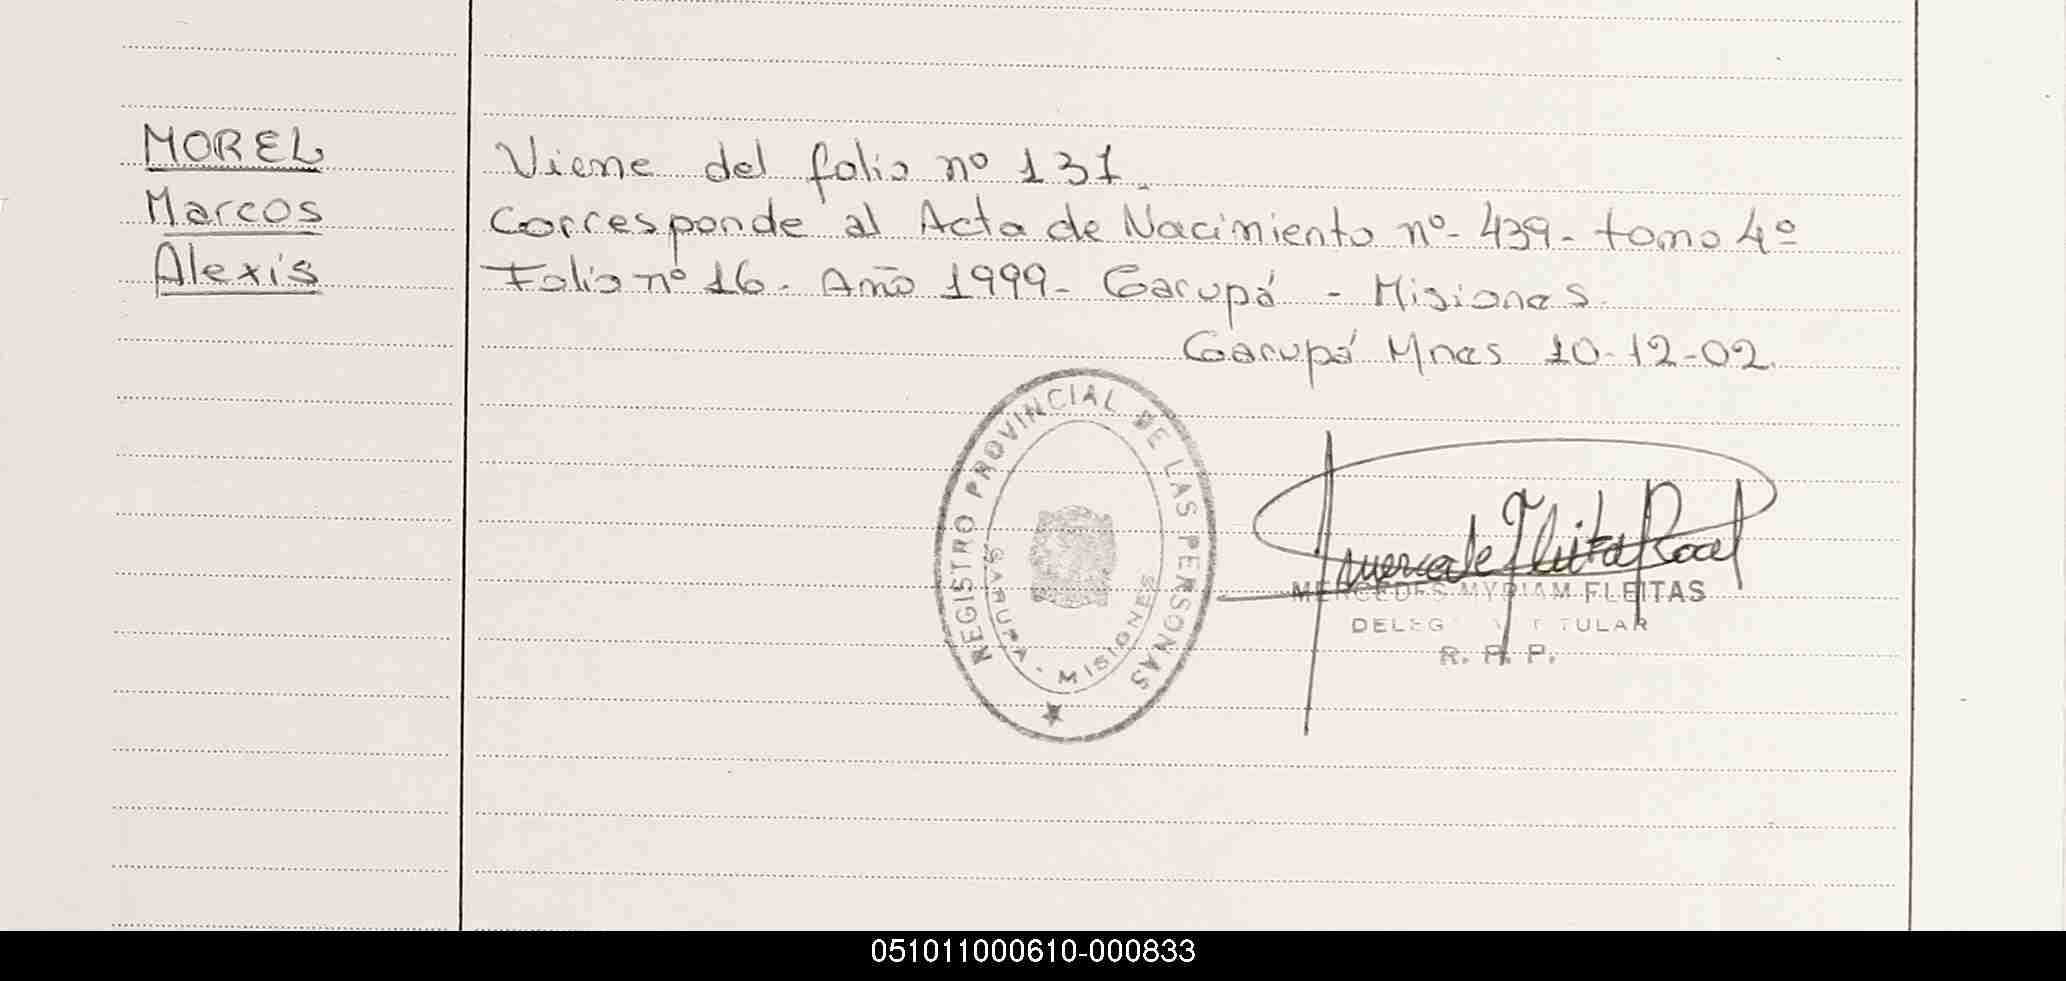 MOREL
Marcos
Alexis
Viene del folio nº 131.
Corresponde al Acta de Nacimiento nº- 439- tomo 4º
Folio nº 16. Año 1999- Garupá - Misiones.
Garupá Mnes 10-12-02.
REGISTRO PROVINCIAL DE LAS PERSONAS
GARUPA - MISIONES
MERCEDES MYRIAM FLEITAS
TITULAR
R. P. P.
051011000610-000833